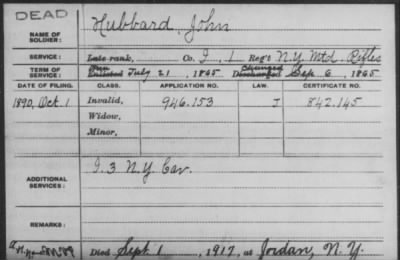 DEAD
NAME OF SOLDIER: Hubbard, John
SERVICE: Late rank, Co. I, 1 Reg't N.Y. Mtd. Rifles
TERM OF SERVICE: Enlisted July 21, 1865 Changed Discharged Sep. 6, 1865
DATE OF FILING. CLASS. APPLICATION NO. LAW. CERTIFICATE NO.
1890, Oct. 1 Invalid, 946.153 J 842.145
Widow,
Minor,
ADDITIONAL SERVICES: I. 3 N.Y. Cav.
REMARKS:
Died Sept. 1, 1917, at Jordan, N.Y.